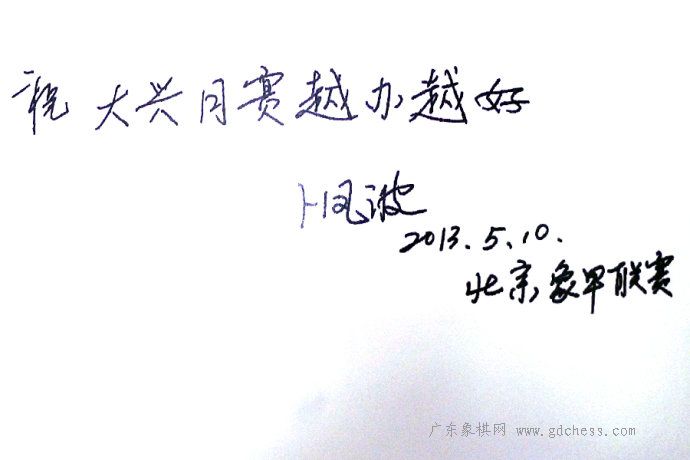 祝 大兴月赛越办越好
卜凤波
2013.5.10.
北京象甲联赛
广东象棋网 www.gdchess.com